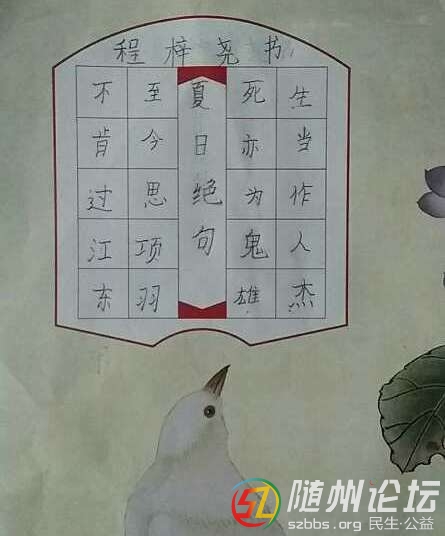 程梓尧书
生当作人杰
死亦为鬼雄
夏日绝句
至今思项羽
不肯过江东
随州论坛
szbbs.org 民生·公益